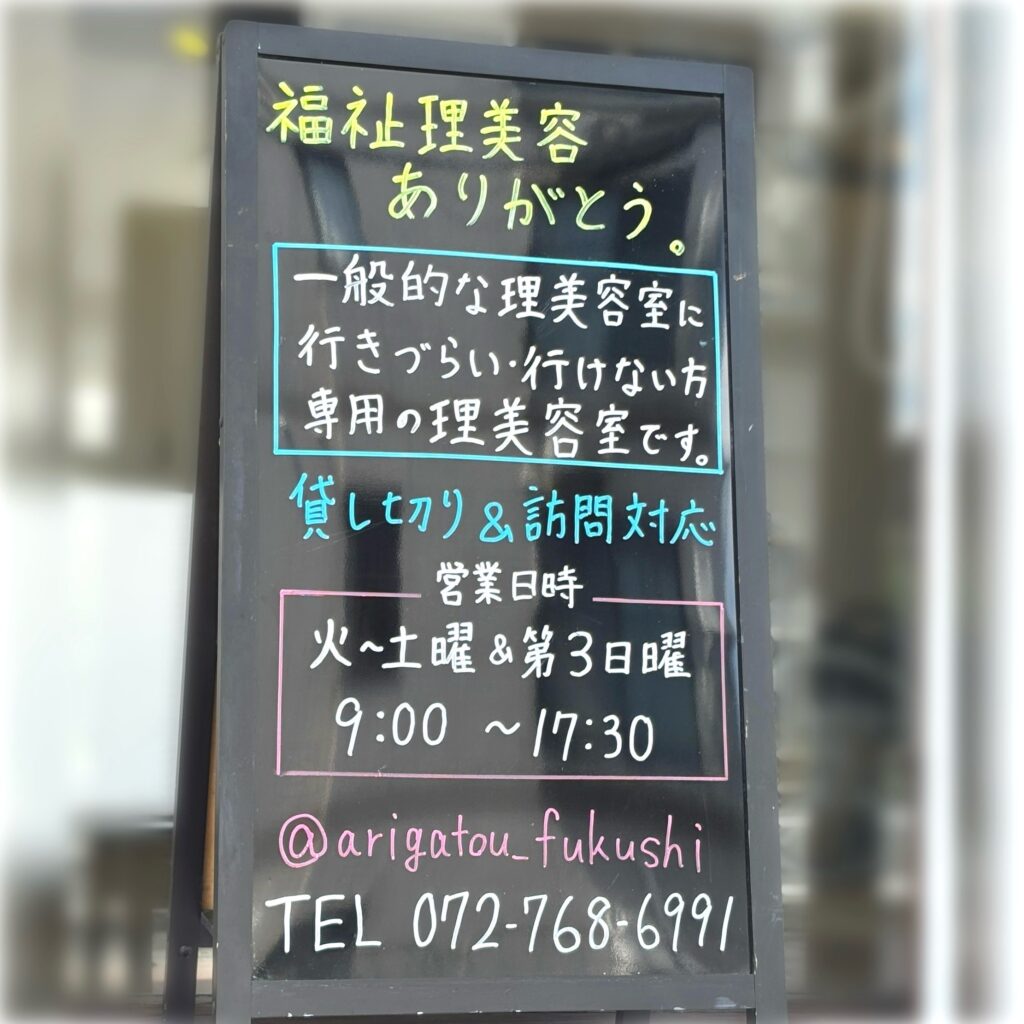 福祉理美容
ありがとう。
一般的な理美容室に
行きづらい・行けない方
専用の理美容室です。
貸し切り&訪問対応
営業日時
火~土曜&第3日曜
9:00 ~17:30
@arigatou_fukushi
TEL 072-768-6991